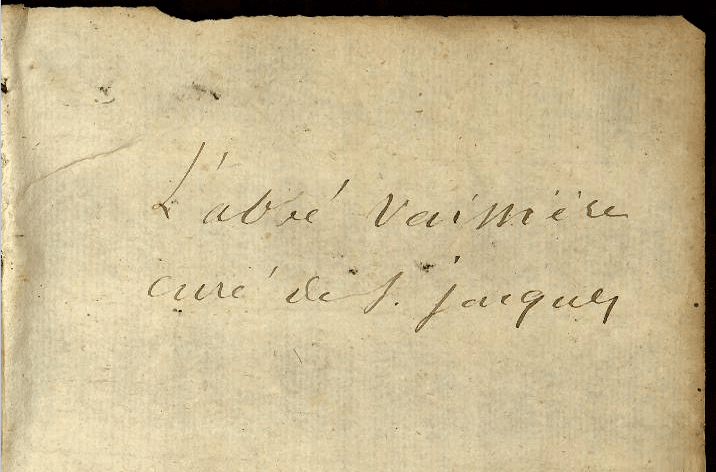 L'abbé Vaissière
curé de S. jacques